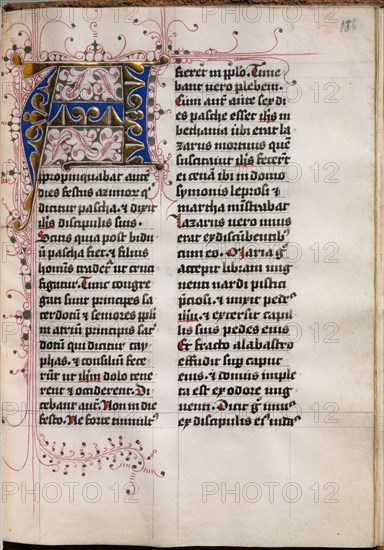 186
A
ppropinquabat autē
dies festus azimoꝝ q̄
dicitur pascha. et dixit
ihs discipulis suis.
Scitis quia post bidu
ū pascha fiet. et filius
hominis tradet᷑ ut cruci
figatur. Tunc congre
gati sunt principes sa
cerdotū et seniores ppli
in atriū principis sac̄
dotū qui dicitur cay
phas. et consiliū fece
rūt ut ihm dolo tene
rent et occiderent. Di
cebant aut. Non in die
festo. Ne forte tumult᷒
fieret in pplo. Time
bant vero plebem.
Cum aut ante sex di
es pasche esset ihs in
bethania ubi erat la
zarus mortuus quē
suscitauit ihs fecert̄
ei cenā ibi in domo
symonis leprosi et
martha mīstrabat
Lazarus vero unus
erat ex discūbentib᷒
cum eo. Maria g̊
accepit libram ung
uenti nardi pistici
p̄ciosi. et unxit pedes
ihu. et extersit capil
lis suis pedes eius
Et fracto alabastro
effudit sup caput
eius. et domus imple
ta est ex odore ung
uenti. Dicit g̊ unus
ex discipulis eius
PHOTO 12